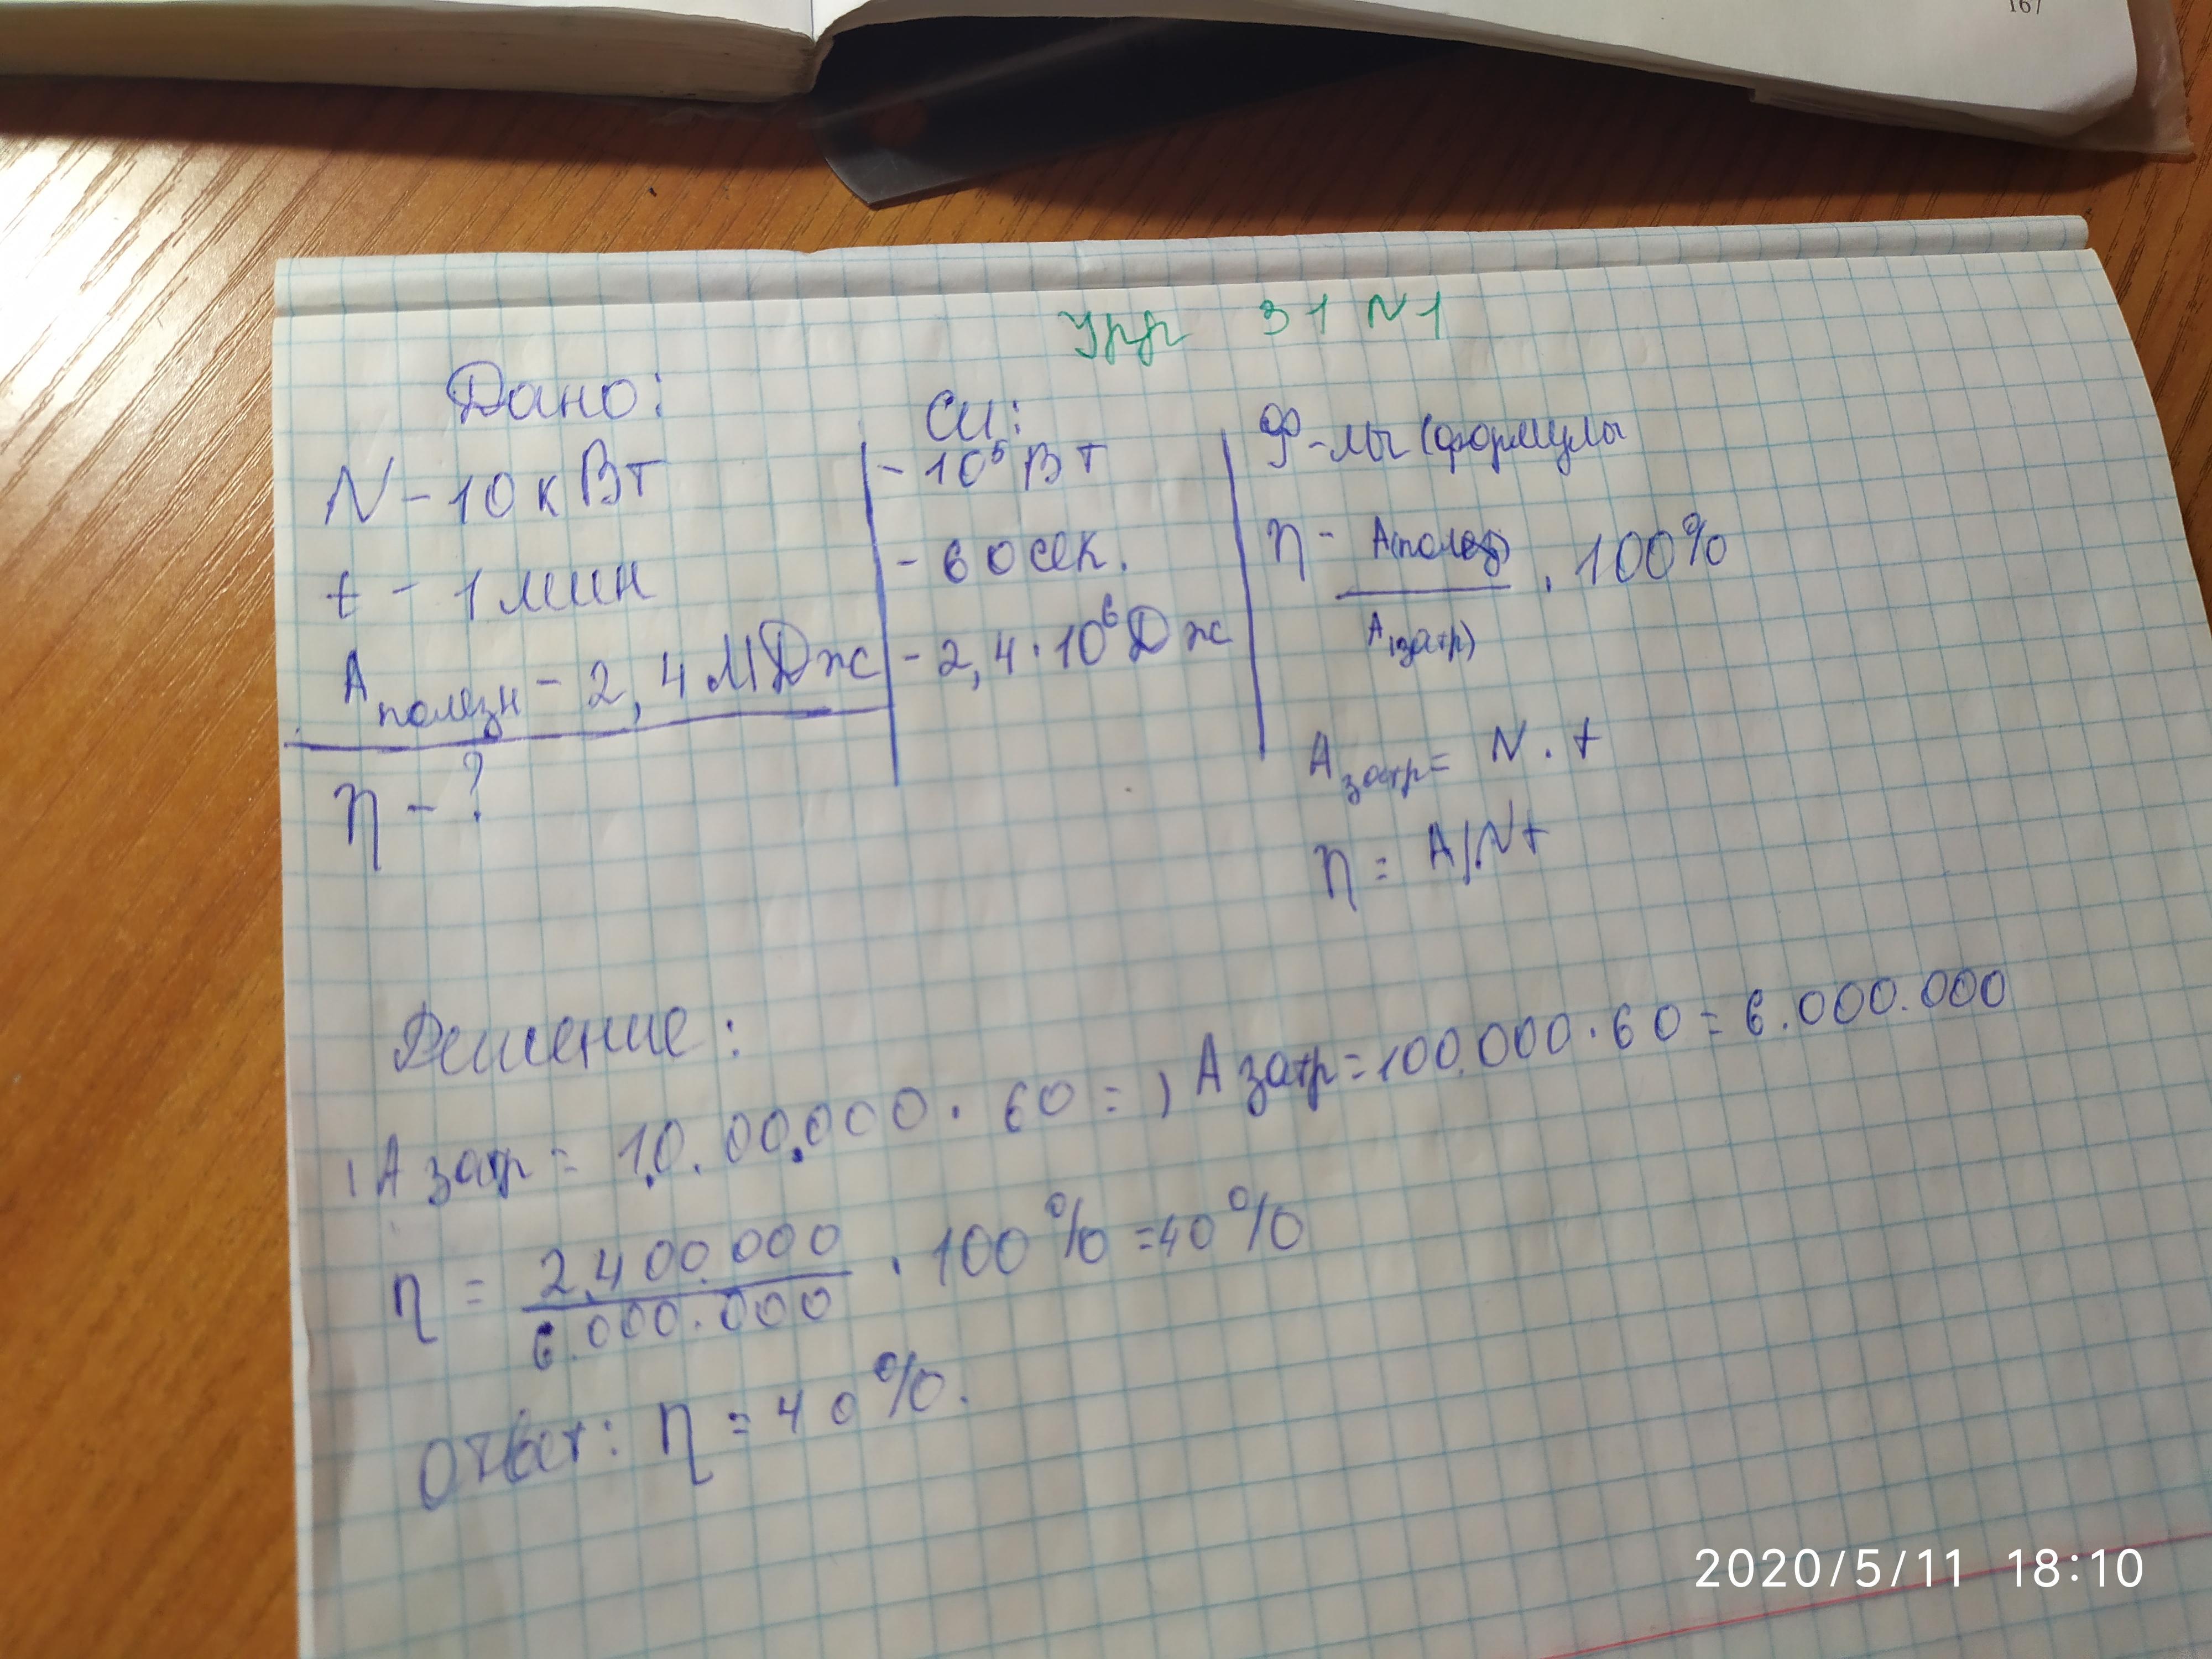 167
Упр 31 N1
Дано:
N - 10 кВт
t - 1 мин
A полезн - 2,4 МДж
η - ?
СИ:
- 10⁵ Вт
- 60 сек.
- 2,4 · 10⁶ Дж
Ф-лы (формулы
η - A(полез) / A(затр) · 100%
A затр = N · t
η = A/Nt
Решение:
A затр = 10.00.000 · 60 = , A затр = 100.000 · 60 = 6.000.000
η = 2.400.000 / 6.000.000 · 100% = 40%
Ответ: η = 40%.
2020/5/11 18:10